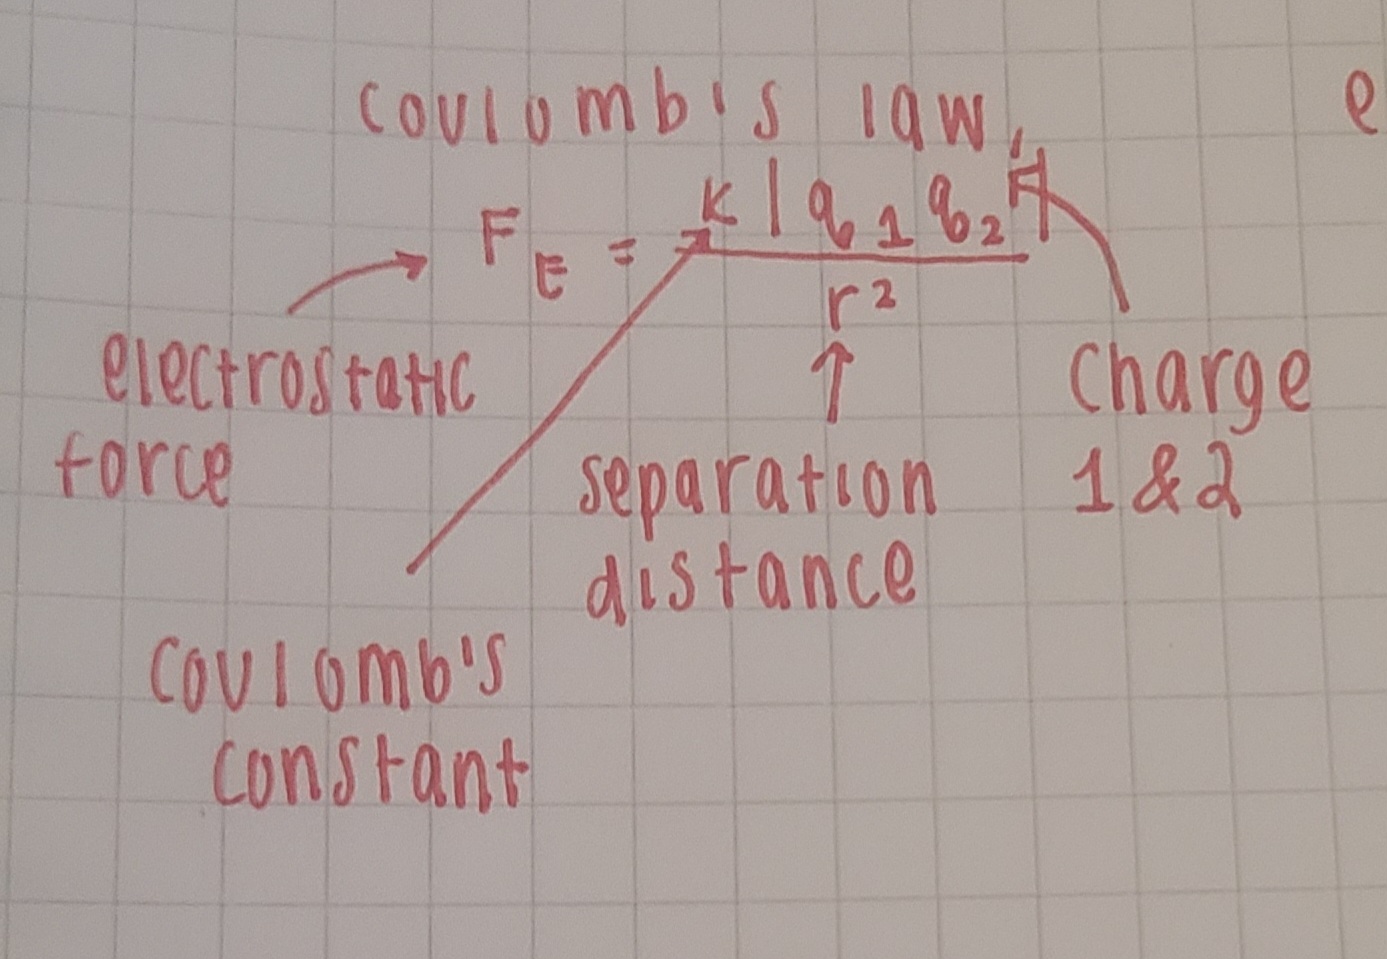 Coulomb's law
e
F_E = k|q₁q₂|
r²
electrostatic
force
separation
distance
Charge
1 & 2
Coulomb's
constant